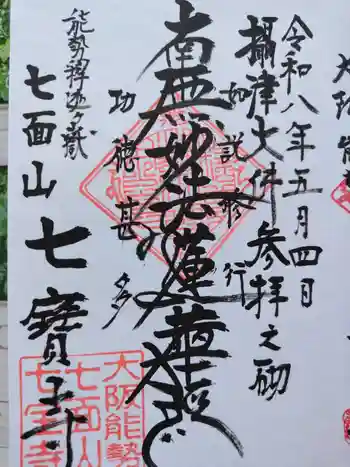 令和八年五月四日
攝津大仏参拝之砌
如説修行
南無妙法蓮華経
功徳甚多
能勢釋迦ヶ嶽
七面山 七寶寺
大阪能勢
七面山
七宝寺